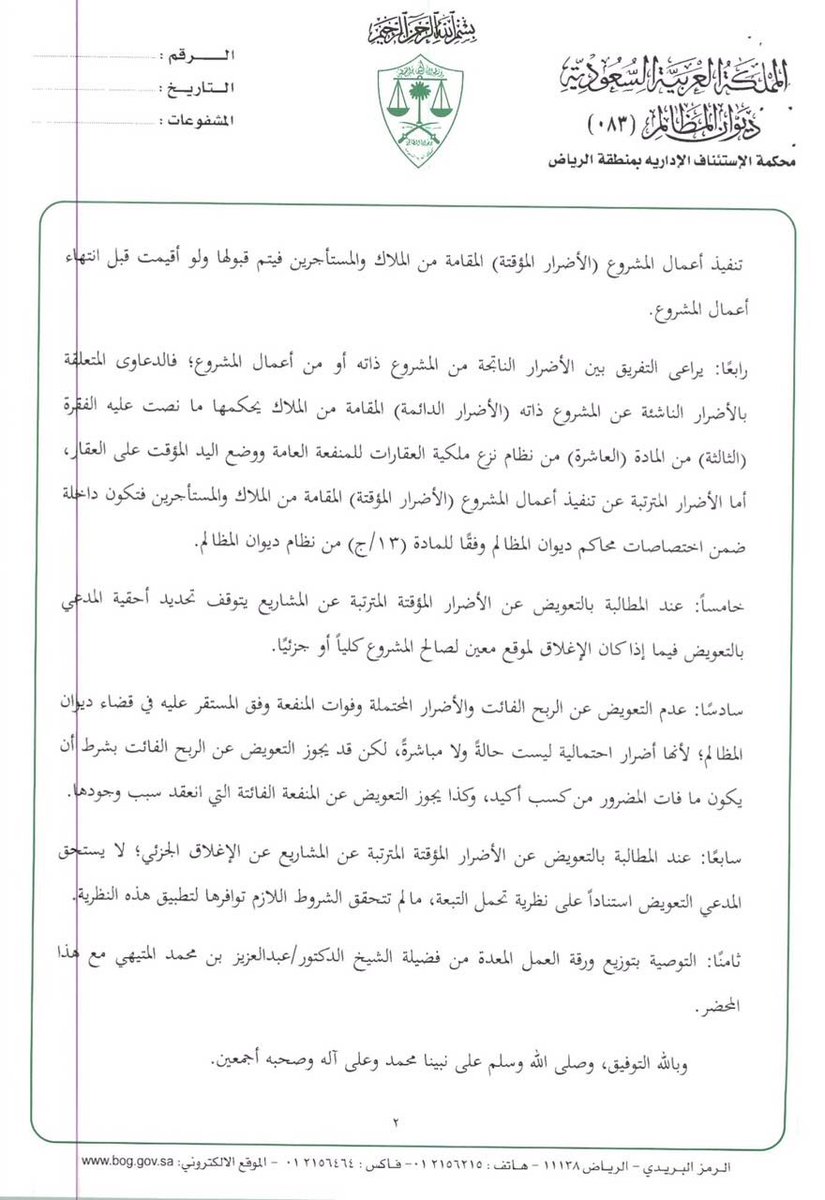 بسم الله الرحمن الرحيم
المملكة العربية السعودية
ديوان المظالم (٠٨٣)
محكمة الإستئناف الإداريه بمنطقة الرياض
الـــرقم :
التـاريـخ :
المشفوعات :
تنفيذ أعمال المشروع (الأضرار المؤقتة) المقامة من الملاك والمستأجرين فيتم قبولها ولو أقيمت قبل انتهاء
أعمال المشروع.
رابعًا: يراعى التفريق بين الأضرار الناتجة من المشروع ذاته أو من أعمال المشروع؛ فالدعاوى المتعلقة
بالأضرار الناشئة عن المشروع ذاته (الأضرار الدائمة) المقامة من الملاك يحكمها ما نصت عليه الفقرة
(الثالثة) من المادة (العاشرة) من نظام نزع ملكية العقارات للمنفعة العامة ووضع اليد المؤقت على العقار،
أما الأضرار المترتبة عن تنفيذ أعمال المشروع (الأضرار المؤقتة) المقامة من الملاك والمستأجرين فتكون داخلة
ضمن اختصاصات محاكم ديوان المظالم وفقًا للمادة (١٣/ج) من نظام ديوان المظالم.
خامساً: عند المطالبة بالتعويض عن الأضرار المؤقتة المترتبة عن المشاريع يتوقف تحديد أحقية المدعي
بالتعويض فيما إذا كان الإغلاق لموقع معين لصالح المشروع كلياً أو جزئيًا.
سادسًا: عدم التعويض عن الربح الفائت والأضرار المحتملة وفوات المنفعة وفق المستقر عليه في قضاء ديوان
المظالم؛ لأنها أضرار احتمالية ليست حالةً ولا مباشرةً، لكن قد يجوز التعويض عن الربح الفائت بشرط أن
يكون ما فات المضرور من كسب أكيد، وكذا يجوز التعويض عن المنفعة الفائتة التي انعقد سبب وجودها.
سابعًا: عند المطالبة بالتعويض عن الأضرار المؤقتة المترتبة عن المشاريع عن الإغلاق الجزئي؛ لا يستحق
المدعي التعويض استناداً على نظرية تحمل التبعة، مالم تتحقق الشروط اللازم توافرها لتطبيق هذه النظرية.
ثامنًا: التوصية بتوزيع ورقة العمل المعدة من فضيلة الشيخ الدكتور/عبدالعزيز بن محمد المتيهي مع هذا
المحضر.
وبالله التوفيق، وصلى الله وسلم على نبينا محمد وعلى آله وصحبه أجمعين.
٢
الرمز البريدي - الرياض ١١١٣٨ - هاتف : ٢١٥٦٢١٥ ٠١- فاكس : ٢١٥٦٤٦٤ ٠١ - الموقع الالكتروني: www.bog.gov.sa